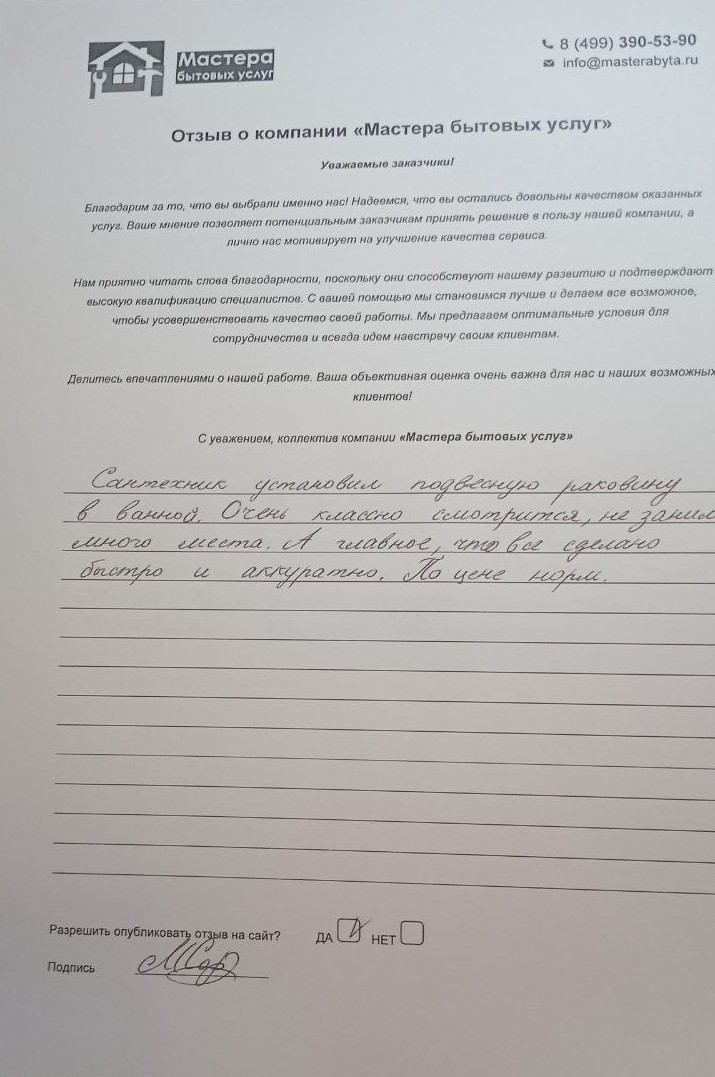 Мастера
бытовых услуг
8 (499) 390-53-90
info@masterabyta.ru
Отзыв о компании «Мастера бытовых услуг»
Уважаемые заказчики!
Благодарим за то, что вы выбрали именно нас! Надеемся, что вы остались довольны качеством оказанных
услуг. Ваше мнение позволяет потенциальным заказчикам принять решение в пользу нашей компании, а
лично нас мотивирует на улучшение качества сервиса.
Нам приятно читать слова благодарности, поскольку они способствуют нашему развитию и подтверждают
высокую квалификацию специалистов. С вашей помощью мы становимся лучше и делаем все возможное,
чтобы усовершенствовать качество своей работы. Мы предлагаем оптимальные условия для
сотрудничества и всегда идем навстречу своим клиентам.
Делитесь впечатлениями о нашей работе. Ваша объективная оценка очень важна для нас и наших возможных
клиентов!
С уважением, коллектив компании «Мастера бытовых услуг»
Сантехник установил подвесную раковину
в ванной. Очень классно смотрится, не заним
много места. А главное, что все сделано
быстро и аккуратно. По цене норм.
Разрешить опубликовать отзыв на сайт? ДА НЕТ
Подпись